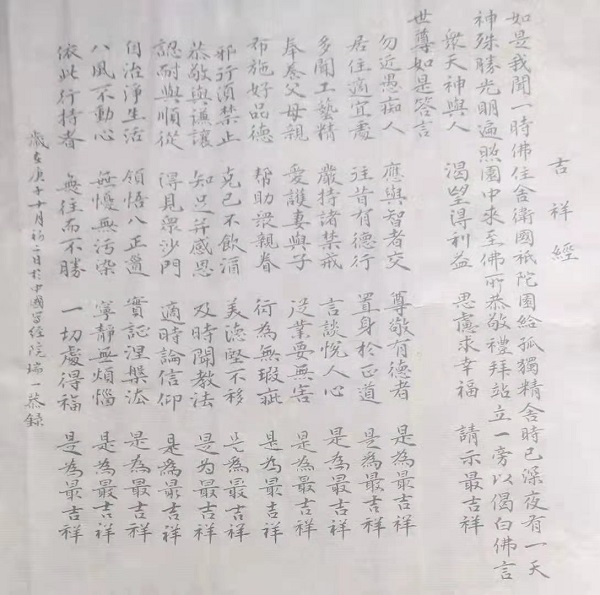 吉祥經
如是我聞一時佛住舍衛國祇陀園給孤獨精舍時已深夜有一天
神殊勝光明遍照園中來至佛所恭敬禮拜站立一旁以偈白佛言
衆天神與人 渴望得利益 思慮求幸福 請示最吉祥
世尊如是答言
勿近愚痴人 應與智者交 尊敬有德者 是為最吉祥
居住適宜處 往昔有德行 置身於正道 是為最吉祥
多聞工藝精 嚴持諸禁戒 言談悅人心 是為最吉祥
奉養父母親 愛護妻與子 從業要無害 是為最吉祥
布施好品德 幫助衆親眷 行為無瑕疵 是為最吉祥
邪行須禁止 克己不飲酒 美德堅不移 是為最吉祥
恭敬與謙讓 知足并感恩 及時聞教法 是为最吉祥
認耐與順從 得見衆沙門 適時論信仰 是為最吉祥
自治淨生活 領悟八正道 實證涅槃法 是為最吉祥
八風不動心 無憂無污染 寧靜無煩惱 是為最吉祥
依此行持者 無往而不勝 一切處得福 是為最吉祥
歲在庚子十月初二日於中國寫經院瑞一恭錄